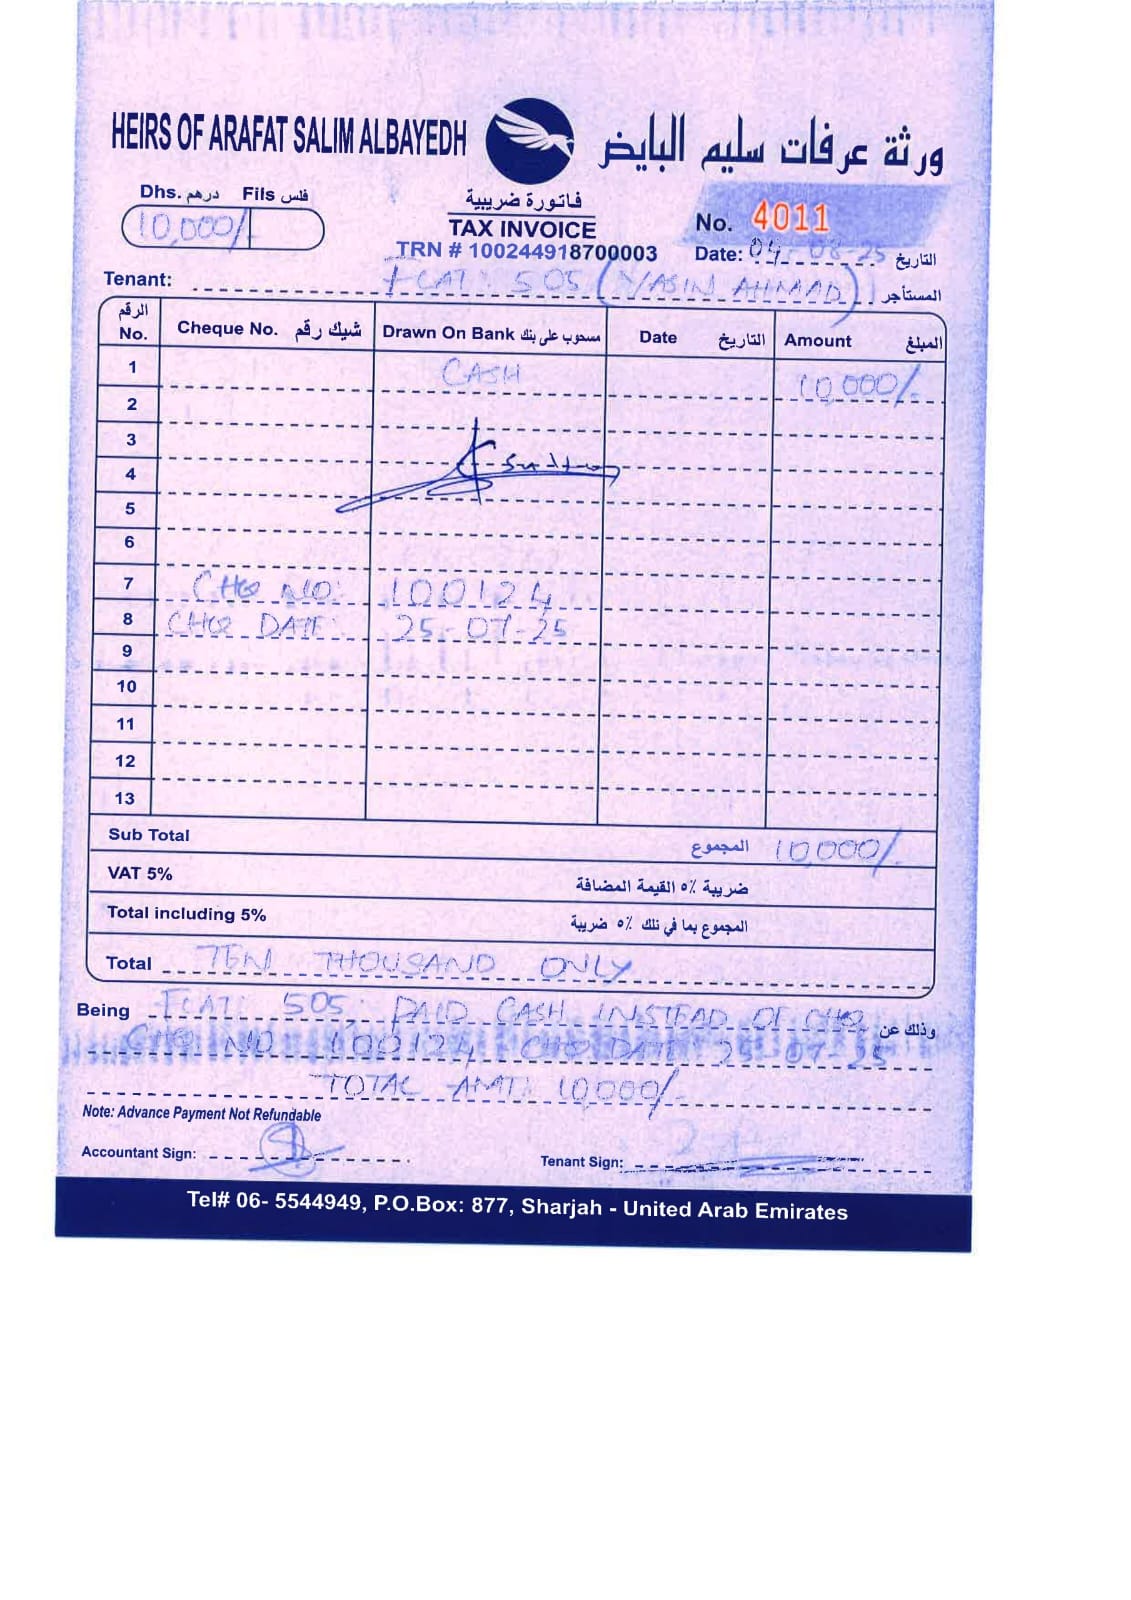 HEIRS OF ARAFAT SALIM ALBAYEDH ورثة عرفات سليم البايض
Dhs. درهم Fils فلس
10,000/
فاتورة ضريبية
TAX INVOICE
No. 4011
TRN # 100244918700003
Date: 04-08-25 التاريخ
Tenant: FLAT: 505 (YASIN AHMAD) المستأجر
الرقم No. Cheque No. شيك رقم Drawn On Bank مسحوب على بنك Date التاريخ Amount المبلغ
1 CASH 10,000/-
2
3
4
5
6
7 CHQ NO: 100124
8 CHQ DATE: 25-07-25
9
10
11
12
13
Sub Total المجموع 10,000/-
VAT 5% ضريبة ٥٪ القيمة المضافة
Total including 5% المجموع بما في ذلك ٥٪ ضريبة
Total TEN THOUSAND ONLY
Being FLAT: 505, PAID CASH INSTEAD OF CHQ وذلك عن
CHQ NO 100124, CHQ DATE: 25-07-25
TOTAL AMT: 10,000/-
Note: Advance Payment Not Refundable
Accountant Sign: Tenant Sign:
Tel# 06- 5544949, P.O.Box: 877, Sharjah - United Arab Emirates